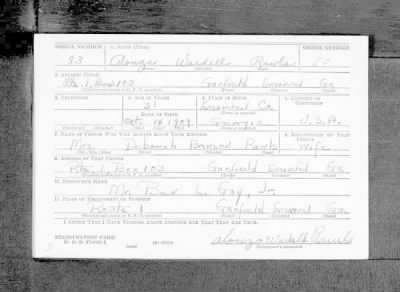 SERIAL NUMBER 1. NAME (Print) ORDER NUMBER
83 Alonza Wardell Rawls 50
2. ADDRESS (Print)
Rt. 1, Box 103 Garfield Emanuel Ga.
3. TELEPHONE 4. AGE IN YEARS 5. PLACE OF BIRTH 6. COUNTRY OF CITIZENSHIP
31 Emanuel Co.
DATE OF BIRTH
Oct. 14 1909 Georgia U.S.A.
7. NAME OF PERSON WHO WILL ALWAYS KNOW YOUR ADDRESS 8. RELATIONSHIP OF THAT PERSON
Mrs. Deborah Rawls Wife
9. ADDRESS OF THAT PERSON
Rte 1, Box 103 Garfield Emanuel Ga.
10. EMPLOYER'S NAME
Mr. L. Gay, Jr.
11. PLACE OF EMPLOYMENT OR BUSINESS
Route 1 Garfield Emanuel Ga.
I AFFIRM THAT I HAVE VERIFIED ABOVE ANSWERS AND THAT THEY ARE TRUE.
REGISTRATION CARD
D. S. S. FORM 1 Alonzo Wardell Rawls